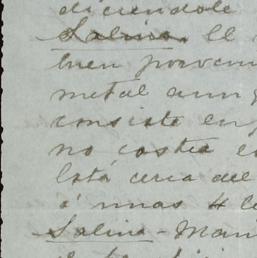 diciendole
Salina. El
bien porven
metal aunq
consiste en
no costea e
Está cerca del
á unas 4 le
Salina - Man